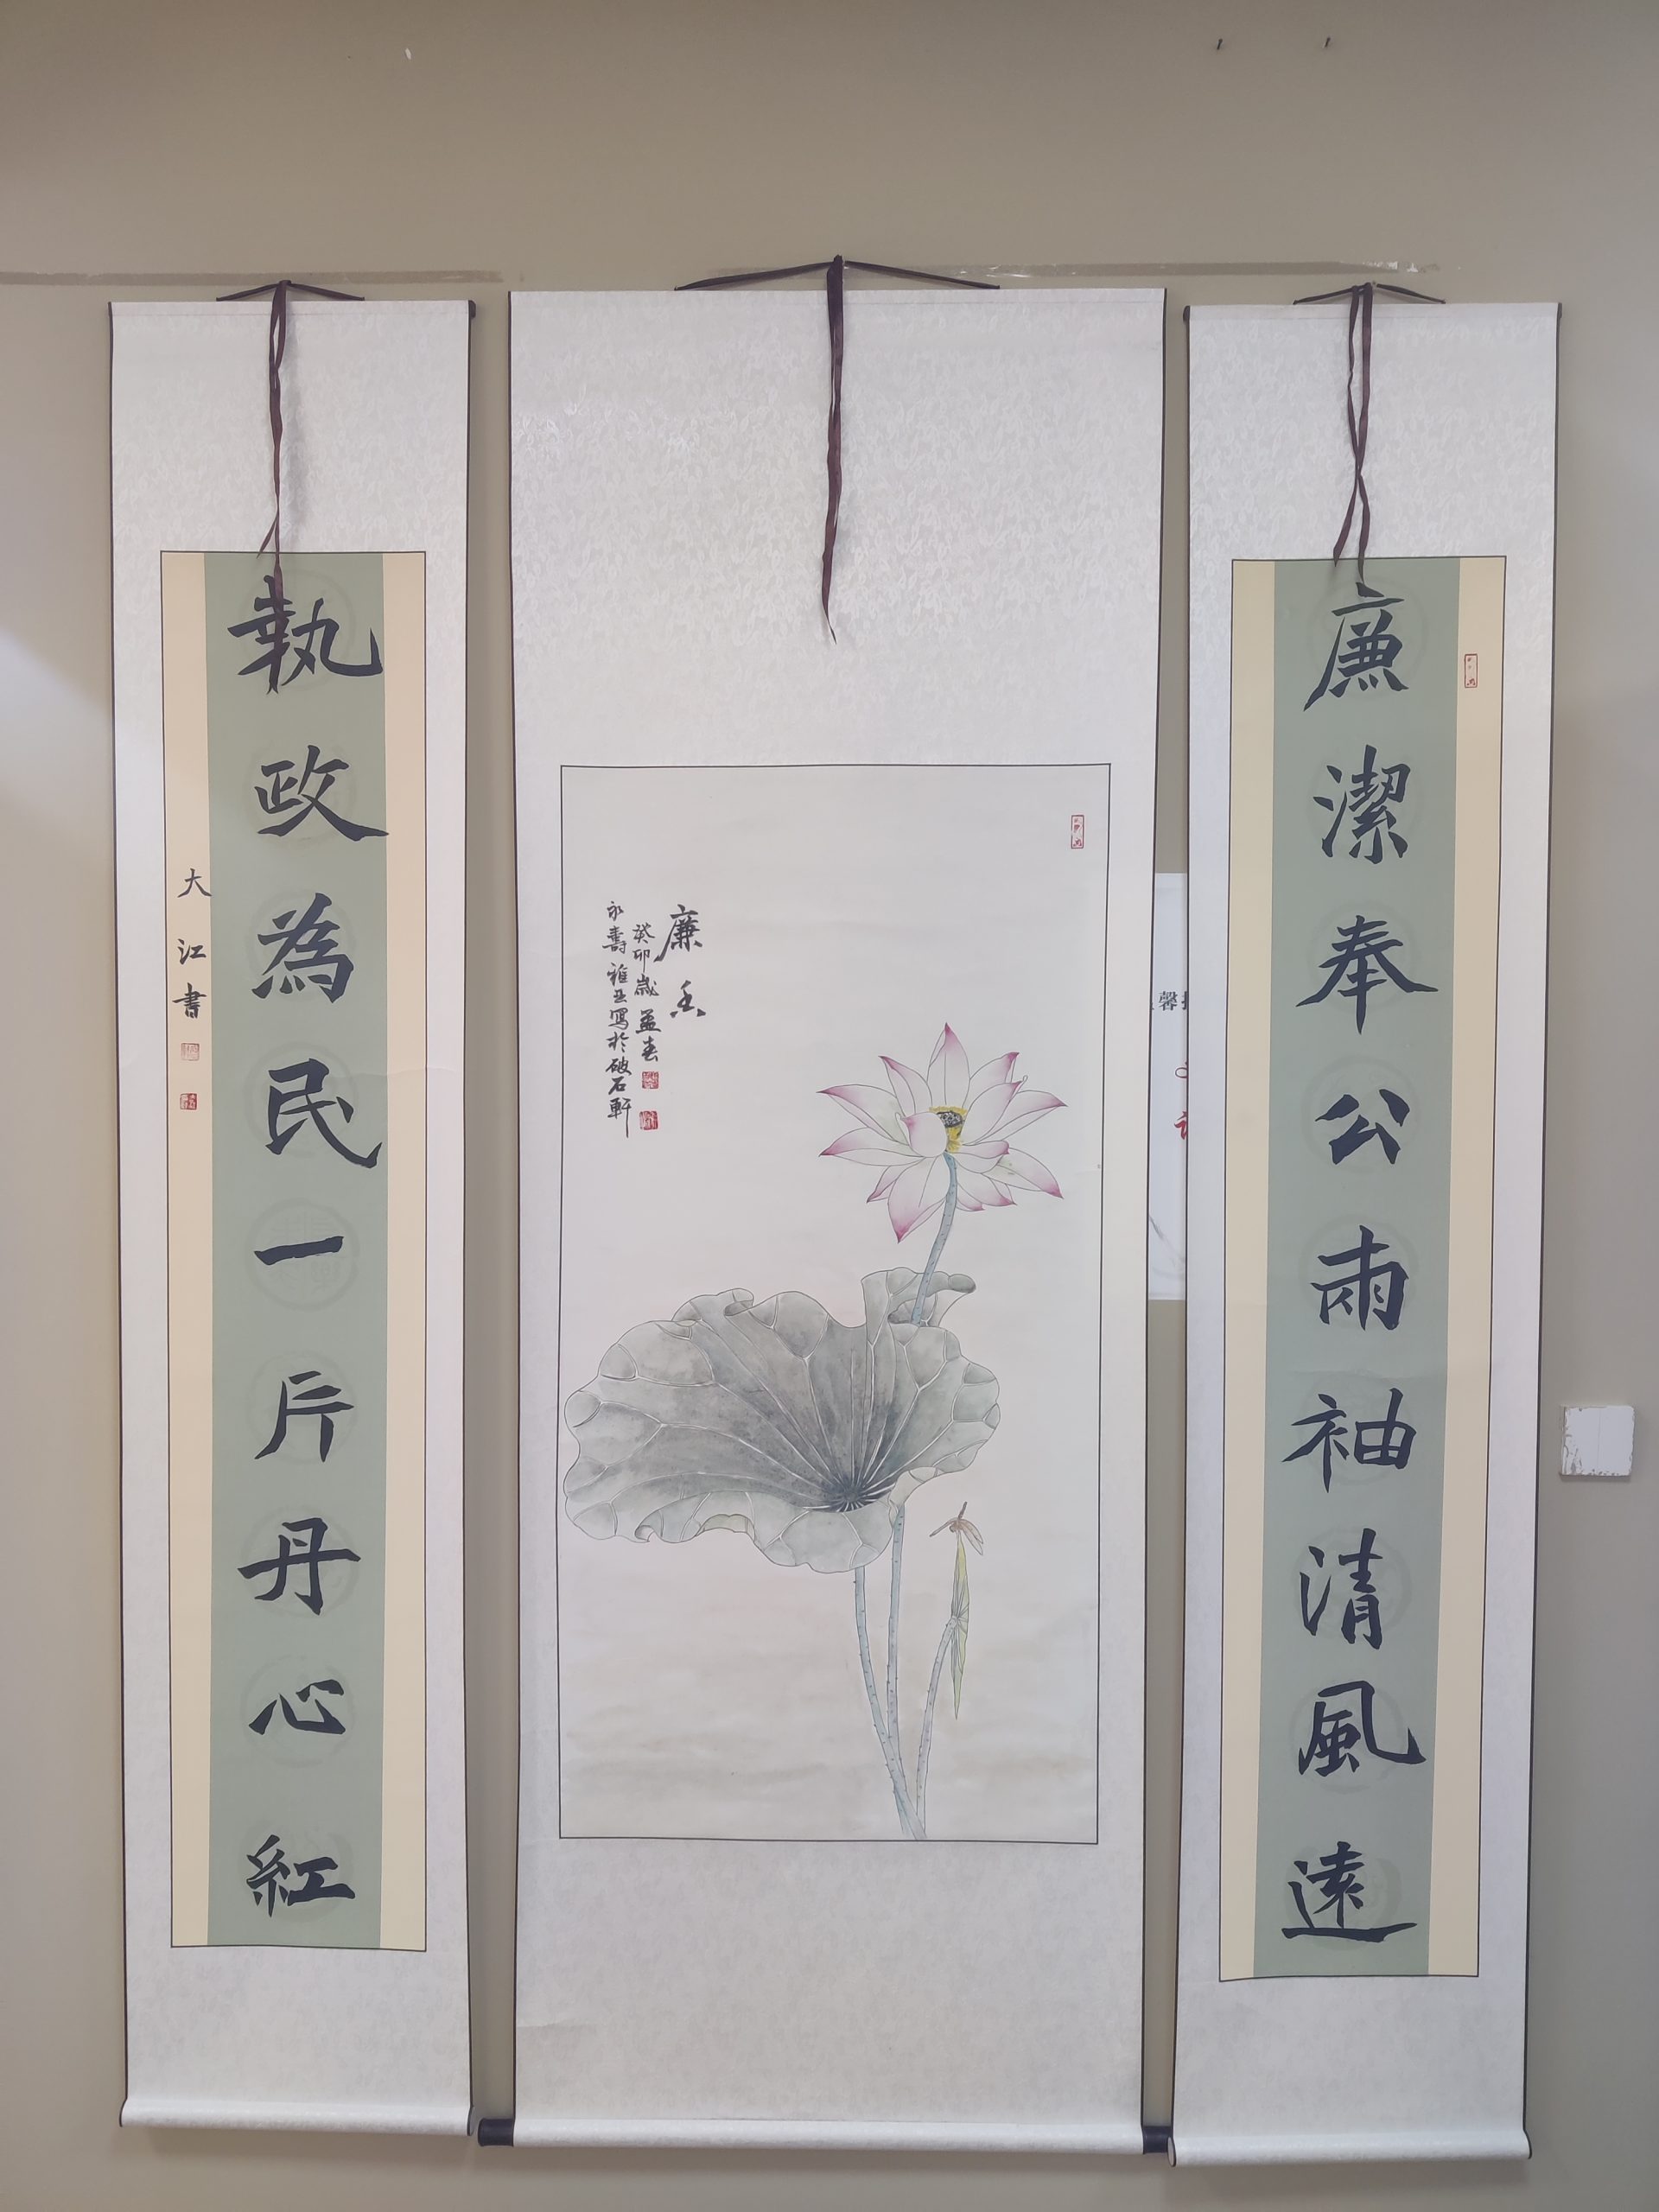 廉潔奉公兩袖清風遠
廉香
癸卯歲孟春
永壽雅丑寫於破石軒
執政為民一片丹心紅
大江書
馨